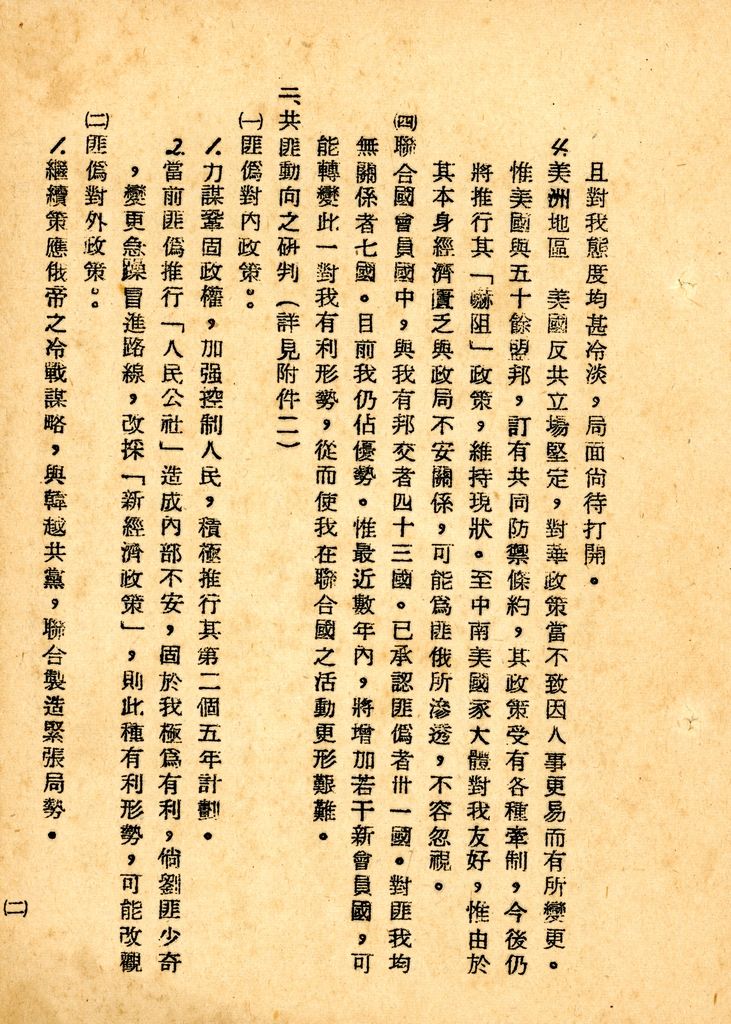 且對我態度均甚冷淡，局面尙待打開。
4.美洲地區　美國反共立場堅定，對華政策當不致因人事更易而有所變更。
惟美國與五十餘盟邦，訂有共同防禦條約，其政策受有各種牽制，今後仍
將推行其「嚇阻」政策，維持現狀。至中南美國家大體對我友好，惟由於
其本身經濟匱乏與政局不安關係，可能爲匪俄所滲透，不容忽視。
㈣聯合國會員國中，與我有邦交者四十三國。已承認匪僞者卅一國。對匪我均
無關係者七國。目前我仍佔優勢。惟最近數年內，將增加若干新會員國，可
能轉變此一對我有利形勢，從而使我在聯合國之活動更形艱難。
二、共匪動向之研判（詳見附件二）
㈠匪僞對內政策。。
1.力謀鞏固政權，加强控制人民，積極推行其第二個五年計劃。
2.當前匪僞推行「人民公社」造成內部不安，固於我極爲有利，倘劉匪少奇
，變更急躁冒進路線，改採「新經濟政策」，則此種有利形勢，可能改觀
㈡匪僞對外政策。。
1.繼續策應俄帝之冷戰謀略，與韓越共黨，聯合製造緊張局勢。
㈡